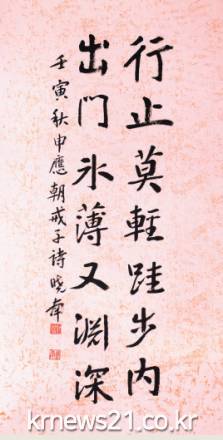 行止莫輕跬步內
出門氷薄又淵深
壬寅秋申應朝戒子詩曉葦
krnews21.co.kr